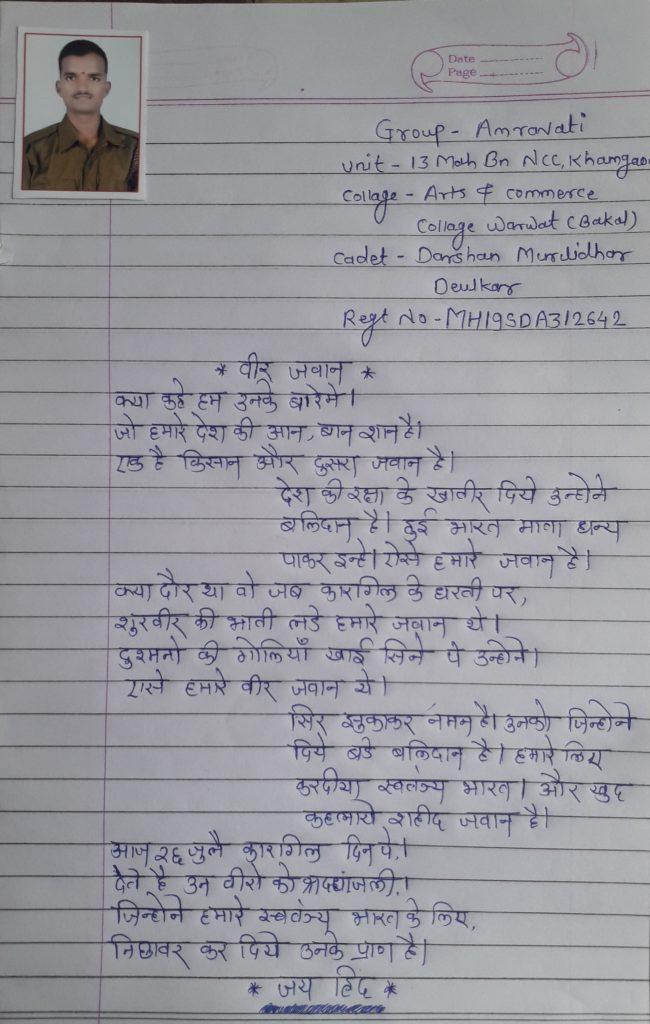 Date
Page
Group - Amravati
Unit - 13 Mah Bn NCC, Khamgao
Collage - Arts & commerce
Collage Warwat (Bakal)
Cadet - Darshan Murlidhar
Dewlkar
Regt No - MH19SDA312642
* वीर जवान *
क्या कहे हम उनके बारेमे।
जो हमारे देश की आन, बान शान है।
एक है किसान और दुसरा जवान है।
देश की रक्षा के खातीर दिये उन्होने
बलिदान है। हुई भारत माता धन्य
पाकर इन्हे। ऐसे हमारे जवान है।
क्या दौर था वो जब कारगिल के धरती पर,
शुरवीर की भाती लडे हमारे जवान थे।
दुश्मनो की गोलियाँ खाई सिने पे उन्होने।
एासे हमारे वीर जवान थे।
सिर झुकाकर नमन है। उनको जिन्होने
दिये बडे बलिदान है। हमारे लिए
करदीया स्वतंत्र्य भारत। और खुद
कहलाये शहीद जवान है।
आज २६ जुलै कारगिल दिन पे,।
देते है उन वीरो को श्रद्धांजली,।
जिन्होने हमारे स्वतंत्र्य भारत के लिए,
निछावर कर दिये उनके प्राण है।
* जय हिंद *